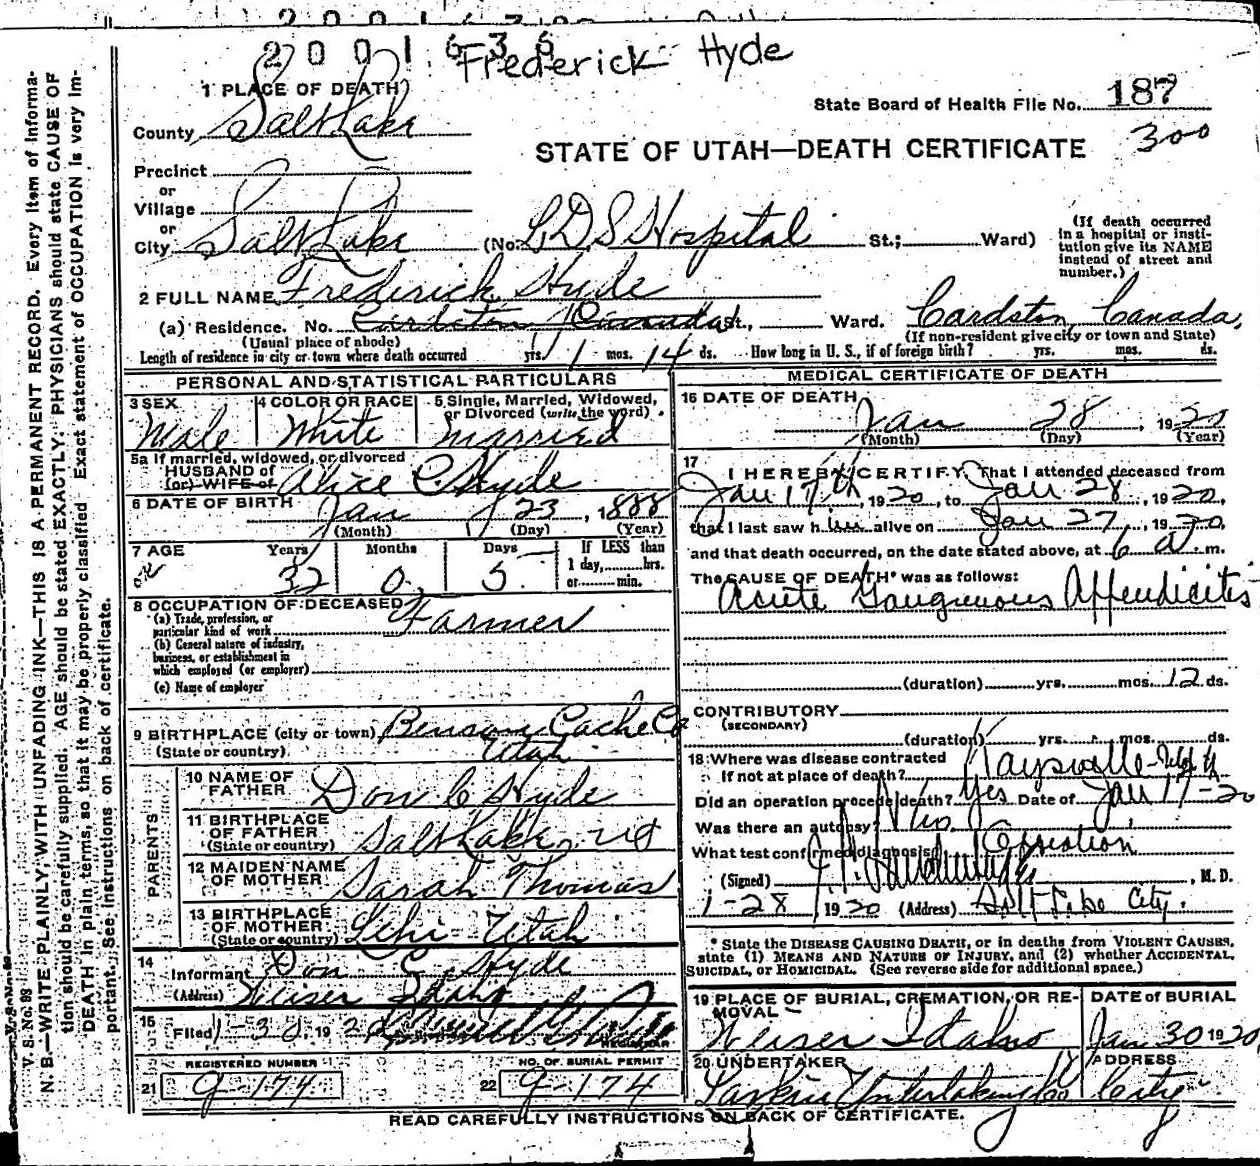 2001636
Frederick Hyde
1 PLACE OF DEATH
State Board of Health File No. 187
300
County Salt Lake
STATE OF UTAH—DEATH CERTIFICATE
Precinct
or
Village
or
City Salt Lake (No. L.D.S Hospital St.; Ward)
(If death occurred in a hospital or institution give its NAME instead of street and number.)
2 FULL NAME Frederick Hyde
(a) Residence. No. Cardston Canada St., Ward. Cardston, Canada,
(Usual place of abode) (If non-resident give city or town and State)
Length of residence in city or town where death occurred yrs. 1 mos. 14 ds. How long in U. S., if of foreign birth? yrs. mos. ds.
PERSONAL AND STATISTICAL PARTICULARS
3 SEX Male
4 COLOR OR RACE White
5 Single, Married, Widowed, or Divorced (write the word). Married
5a If married, widowed, or divorced
HUSBAND of
(or) WIFE of Alice C Hyde
6 DATE OF BIRTH Jan 23, 1888
(Month) (Day) (Year)
7 AGE Years Months Days If LESS than
1 day, hrs.
or min.
ok 32 0 5
8 OCCUPATION OF DECEASED
(a) Trade, profession, or
particular kind of work Farmer
(b) General nature of industry,
business, or establishment in
which employed (or employer)
(c) Name of employer
9 BIRTHPLACE (city or town) Benson Cache Co
(State or country) Utah
PARENTS
10 NAME OF
FATHER Don C Hyde
11 BIRTHPLACE
OF FATHER
(State or country) Salt Lake, Ut
12 MAIDEN NAME
OF MOTHER Sarah Thomas
13 BIRTHPLACE
OF MOTHER
(State or country) Lehi Utah
14
Informant Don C. Hyde
(Address) Weiser Idaho
15
Filed 1-30, 1920
REGISTRAR
REGISTERED NUMBER NO. OF BURIAL PERMIT
21 9-174 22 9-174
MEDICAL CERTIFICATE OF DEATH
16 DATE OF DEATH
Jan 28, 1920
(Month) (Day) (Year)
17
I HEREBY CERTIFY, That I attended deceased from
Jan 17th, 1920, to Jan 28, 1920,
that I last saw him alive on Jan 27, 1920,
and that death occurred, on the date stated above, at 6 a. m.
The CAUSE OF DEATH* was as follows:
Acute Gangrenous Appendicitis
(duration) yrs. mos. 12 ds.
CONTRIBUTORY
(SECONDARY)
(duration) yrs. mos. ds.
18 Where was disease contracted
If not at place of death? Kaysville
Did an operation precede death? Yes Date of Jan 17-20
Was there an autopsy? No.
What test confirmed diagnosis? Operation
(Signed) , M. D.
1-28 1920 (Address) Salt Lake City.
* State the DISEASE CAUSING DEATH, or in deaths from VIOLENT CAUSES,
state (1) MEANS AND NATURE OF INJURY, and (2) whether ACCIDENTAL,
SUICIDAL, or HOMICIDAL. (See reverse side for additional space.)
19 PLACE OF BURIAL, CREMATION, OR REMOVAL
Weiser Idaho
DATE OF BURIAL
Jan 30 1920
20 UNDERTAKER
Larkin Undertaking Co
ADDRESS
City
READ CAREFULLY INSTRUCTIONS ON BACK OF CERTIFICATE.
V. S. No. 98
N. B.—WRITE PLAINLY, WITH UNFADING INK—THIS IS A PERMANENT RECORD. Every item of information
should be carefully supplied. AGE should be stated EXACTLY. PHYSICIANS should state CAUSE OF
DEATH in plain terms, so that it may be properly classified. Exact statement of OCCUPATION is very important.
See instructions on back of certificate.